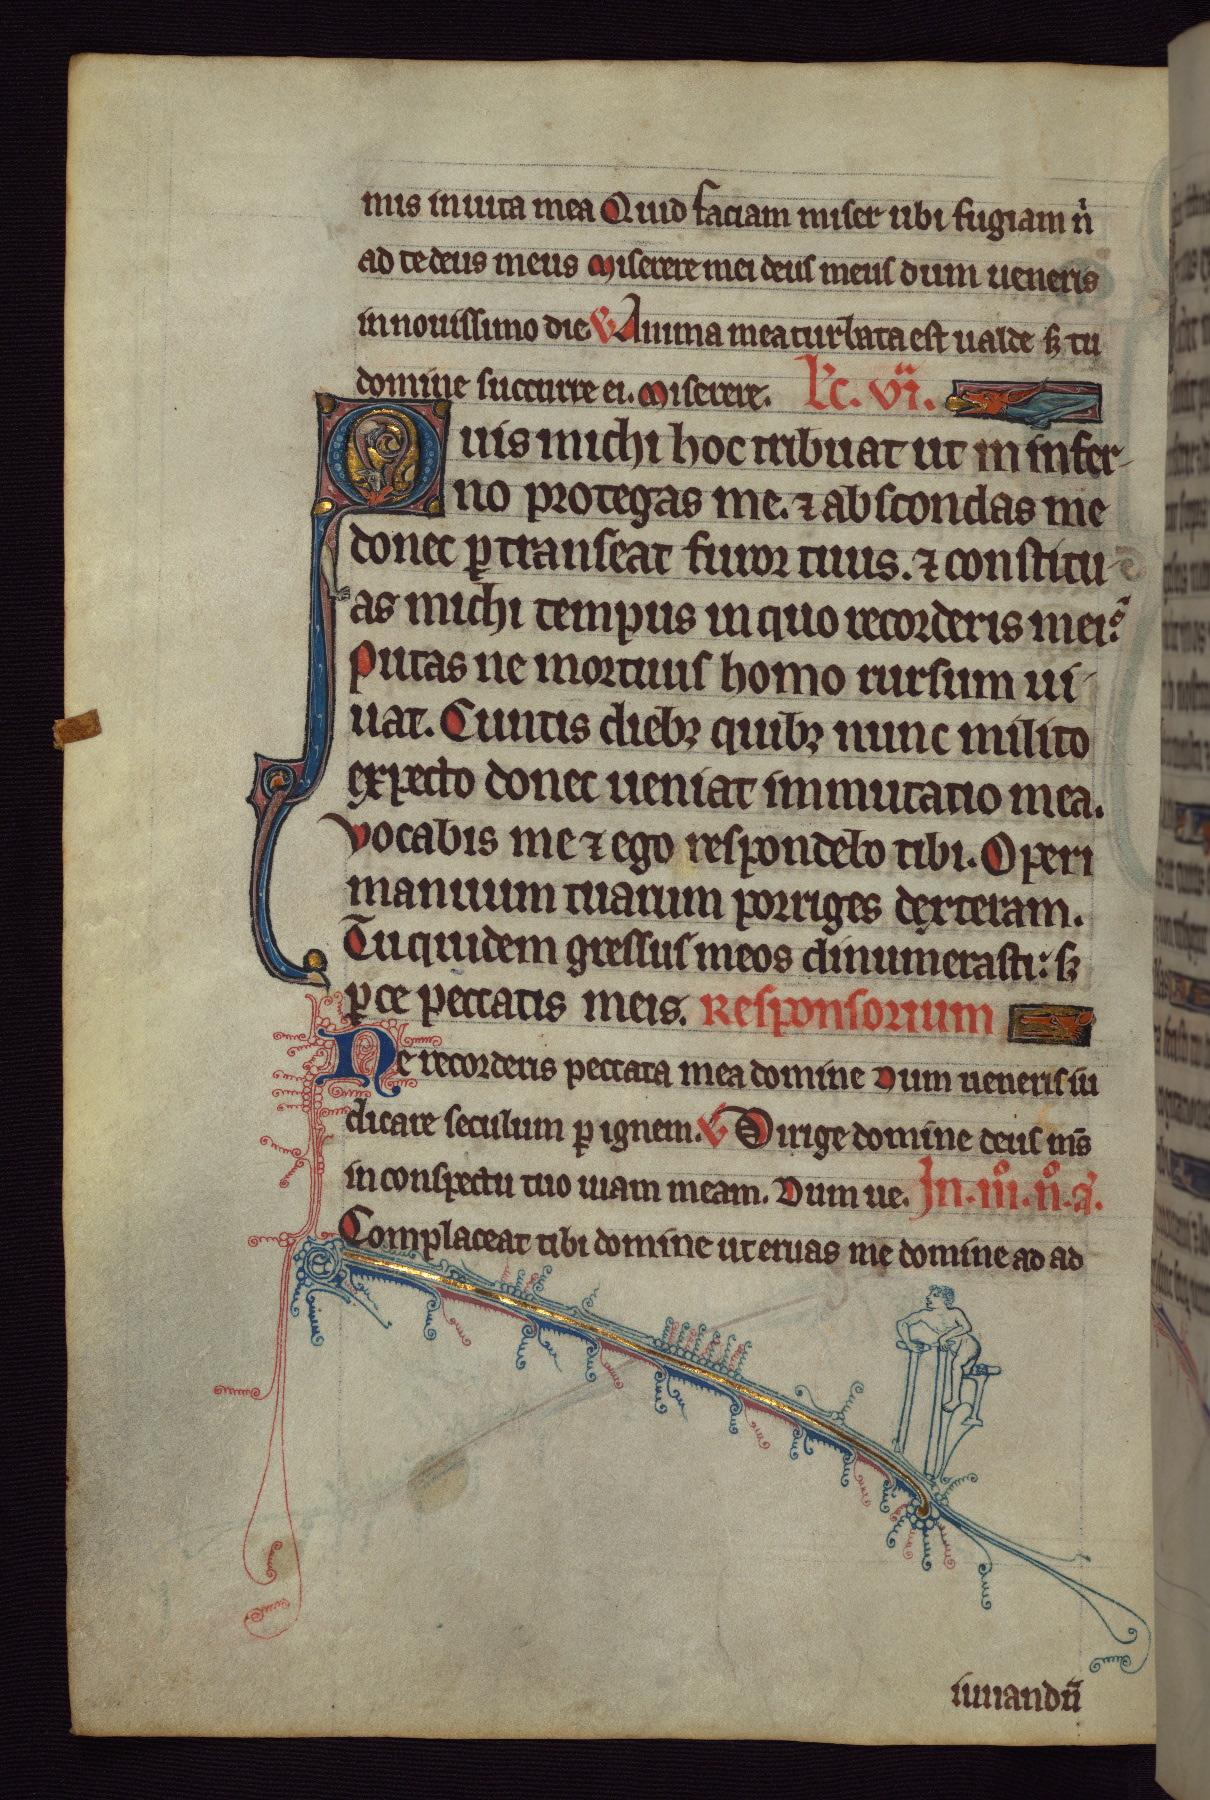 mis in uita mea Quid faciam miser ubi fugiam ñ
ad te deus meus Miserere mei deus meus dum ueneris
in nouissimo die ℣ Anima mea turbata est ualde sꝫ tu
domine succurre ei. Miserere. Lc̄. vi.
Quis michi hoc tribuat ut in infer-
no protegas me. ⁊ abscondas me
donec ꝑtranseat furor tuus. ⁊ constitu-
as michi tempus in quo recorderis mei.
Putas ne mortuus homo rursum ui-
uat. Cuntis diebꝫ quibꝫ nunc milito
expecto donec ueniat immutatio mea.
Vocabis me ⁊ ego respondebo tibi. Operi
manuum tuarum porriges dexteram.
Tu quidem gressus meos dinumerasti: sꝫ
ꝑce peccatis meis. Responsorium
Ne recorderis peccata mea domine Dum ueneris iu
dicare seculum ꝑ ignem. ℣ Dirige domine deus ms̄
in conspectu tuo uiam meam. Dum ue. In. iii. n. a.
Complaceat tibi domine ut eruas me domine ad ad
iuuandū